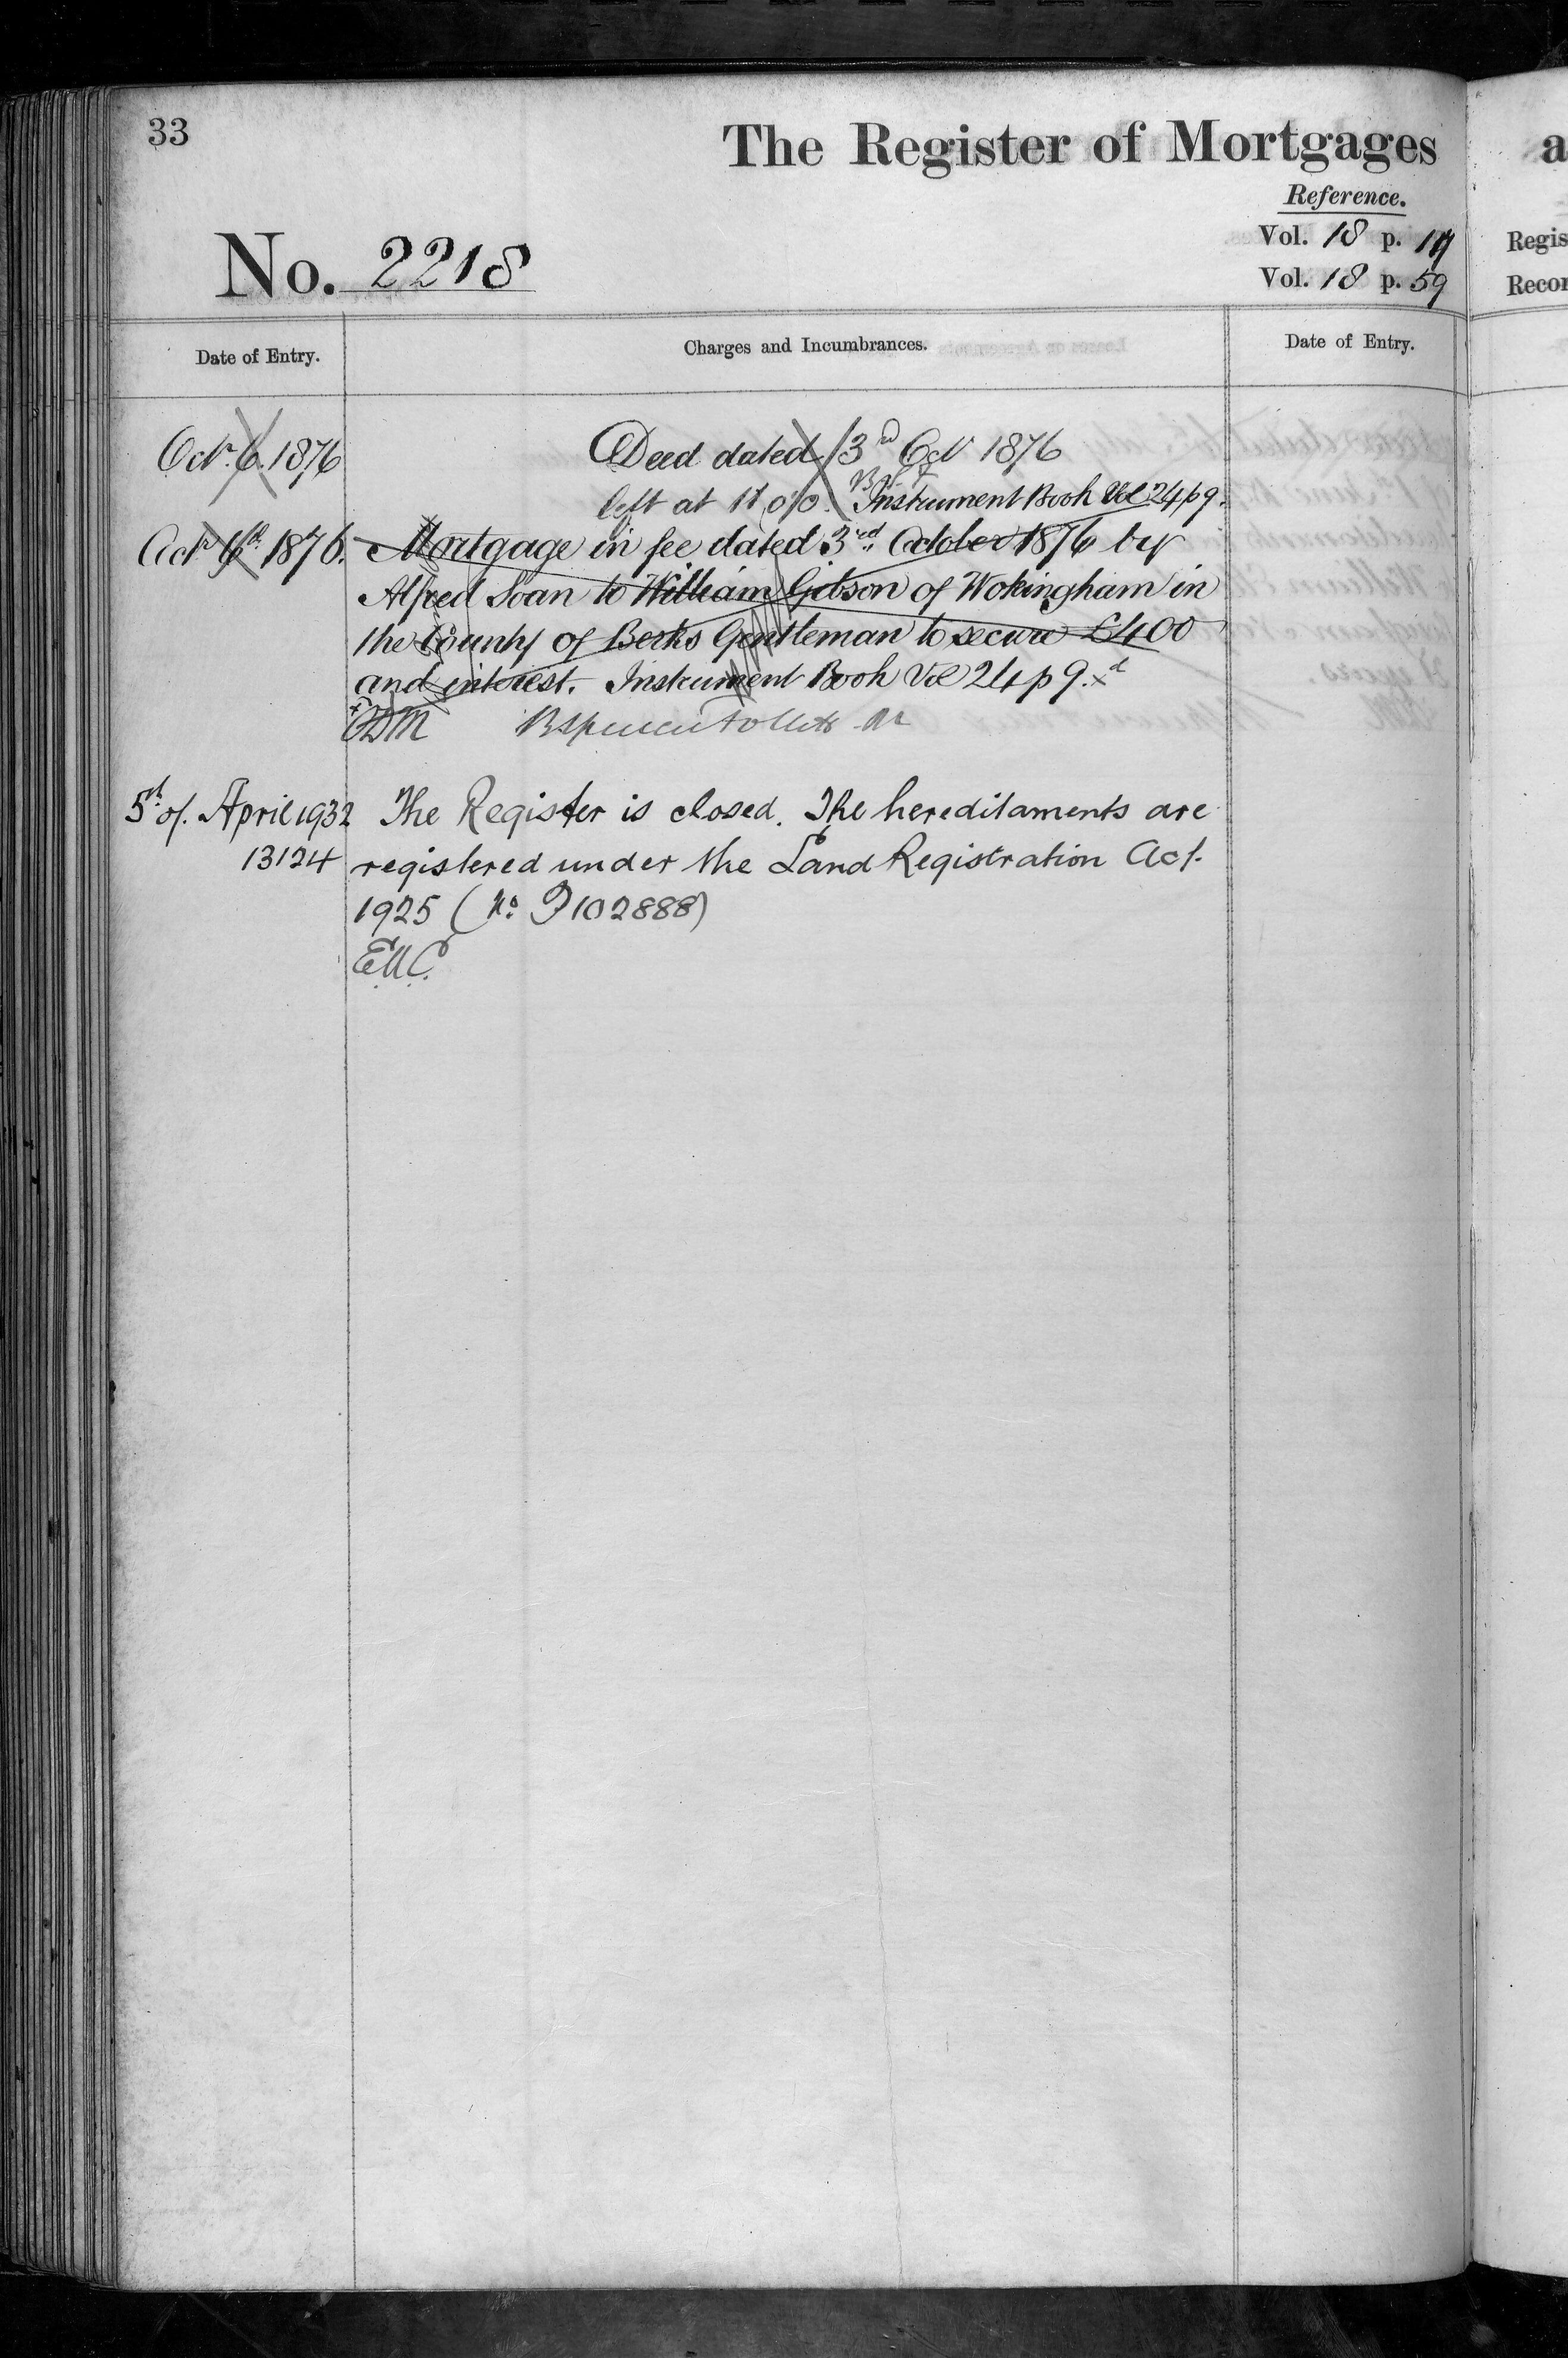 33
The Register of Mortgages
Reference.
Vol. 18 p.
No. 2218
Vol. 18 p. 59
Regis
Recor
Date of Entry.
Charges and Incumbrances.
Date of Entry.
Octr. 6. 1876
Deed dated 3rd Oct 1876
left at Instrument Book Vol 24 p 9.
Octr 6th 1876.
Mortgage in fee dated 3rd October 1876 by
Alfred Soan to William Gibson of Wokingham in
the County of Berks Gentleman to secure £400
and interest. Instrument Book Vol 24 p 9.
5th of April 1932
The Register is closed. The hereditaments are
13124
registered under the Land Registration Act
1925 (No. P102888)
E.M.C.